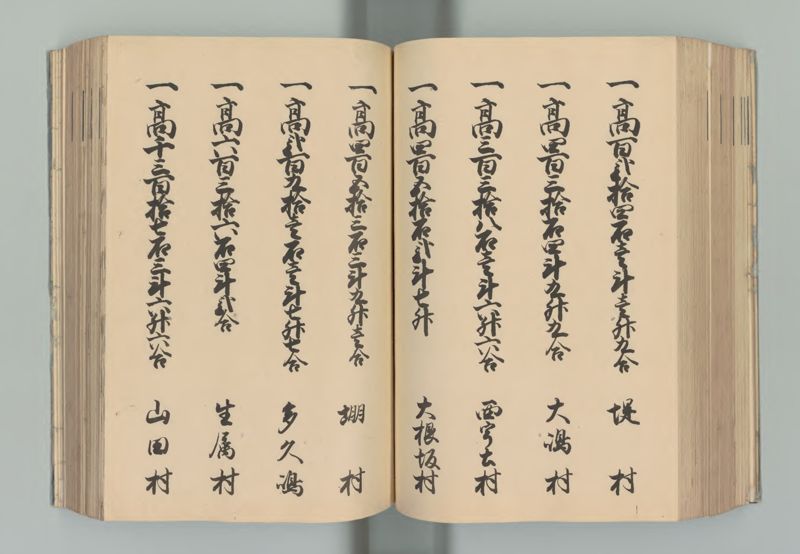 一高百弐拾四石壱斗壱升九合 堤村
一高四百三拾石四斗九升九合 大嶋村
一高三百三拾八石壱斗六升六合 西宇土村
一高四百五拾石弐斗七升 大根坂村
一高四百五拾三石三斗九升壱合 棚村
一高弐百九拾壱石壱斗七升七合 多久嶋
一高六百三拾六石四斗弐合 生属村
一高千三百拾七石三斗六升六合 山田村